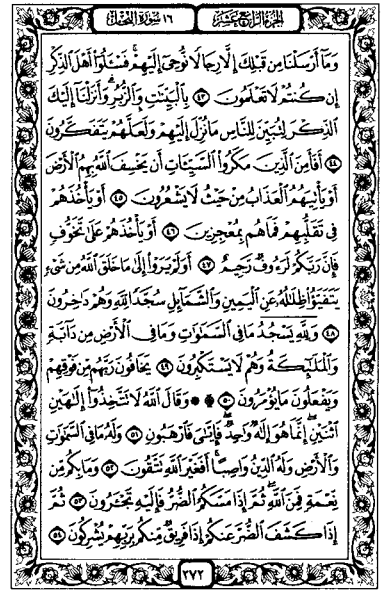 الجزء الرابع عشر ١٦ سورة النحل
وَمَآ أَرْسَلْنَا مِن قَبْلِكَ إِلَّا رِجَالًا نُّوحِىٓ إِلَيْهِمْ ۚ فَسْـَٔلُوٓا۟ أَهْلَ ٱلذِّكْرِ
إِن كُنتُمْ لَا تَعْلَمُونَ ٤٣ بِٱلْبَيِّنَـٰتِ وَٱلزُّبُرِ ۗ وَأَنزَلْنَآ إِلَيْكَ
ٱلذِّكْرَ لِتُبَيِّنَ لِلنَّاسِ مَا نُزِّلَ إِلَيْهِمْ وَلَعَلَّهُمْ يَتَفَكَّرُونَ
٤٤ أَفَأَمِنَ ٱلَّذِينَ مَكَرُوا۟ ٱلسَّيِّـَٔاتِ أَن يَخْسِفَ ٱللَّهُ بِهِمُ ٱلْأَرْضَ
أَوْ يَأْتِيَهُمُ ٱلْعَذَابُ مِنْ حَيْثُ لَا يَشْعُرُونَ ٤٥ أَوْ يَأْخُذَهُمْ
فِى تَقَلُّبِهِمْ فَمَا هُم بِمُعْجِزِينَ ٤٦ أَوْ يَأْخُذَهُمْ عَلَىٰ تَخَوُّفٍ
فَإِنَّ رَبَّكُمْ لَرَءُوفٌ رَّحِيمٌ ٤٧ أَوَلَمْ يَرَوْا۟ إِلَىٰ مَا خَلَقَ ٱللَّهُ مِن شَىْءٍ
يَتَفَيَّؤُا۟ ظِلَـٰلُهُۥ عَنِ ٱلْيَمِينِ وَٱلشَّمَآئِلِ سُجَّدًا لِّلَّهِ وَهُمْ دَٰخِرُونَ
٤٨ وَلِلَّهِ يَسْجُدُ مَا فِى ٱلسَّمَـٰوَٰتِ وَمَا فِى ٱلْأَرْضِ مِن دَآبَّةٍ
وَٱلْمَلَـٰٓئِكَةُ وَهُمْ لَا يَسْتَكْبِرُونَ ٤٩ يَخَافُونَ رَبَّهُم مِّن فَوْقِهِمْ
وَيَفْعَلُونَ مَا يُؤْمَرُونَ ٥٠ ۞ وَقَالَ ٱللَّهُ لَا تَتَّخِذُوٓا۟ إِلَـٰهَيْنِ
ٱثْنَيْنِ ۖ إِنَّمَا هُوَ إِلَـٰهٌ وَٰحِدٌ ۖ فَإِيَّـٰىَ فَٱرْهَبُونِ ٥١ وَلَهُۥ مَا فِى ٱلسَّمَـٰوَٰتِ
وَٱلْأَرْضِ وَلَهُ ٱلدِّينُ وَاصِبًا ۚ أَفَغَيْرَ ٱللَّهِ تَتَّقُونَ ٥٢ وَمَا بِكُم مِّن
نِّعْمَةٍ فَمِنَ ٱللَّهِ ۖ ثُمَّ إِذَا مَسَّكُمُ ٱلضُّرُّ فَإِلَيْهِ تَجْـَٔرُونَ ٥٣ ثُمَّ
إِذَا كَشَفَ ٱلضُّرَّ عَنكُمْ إِذَا فَرِيقٌ مِّنكُم بِرَبِّهِمْ يُشْرِكُونَ ٥٤
٢٧٢